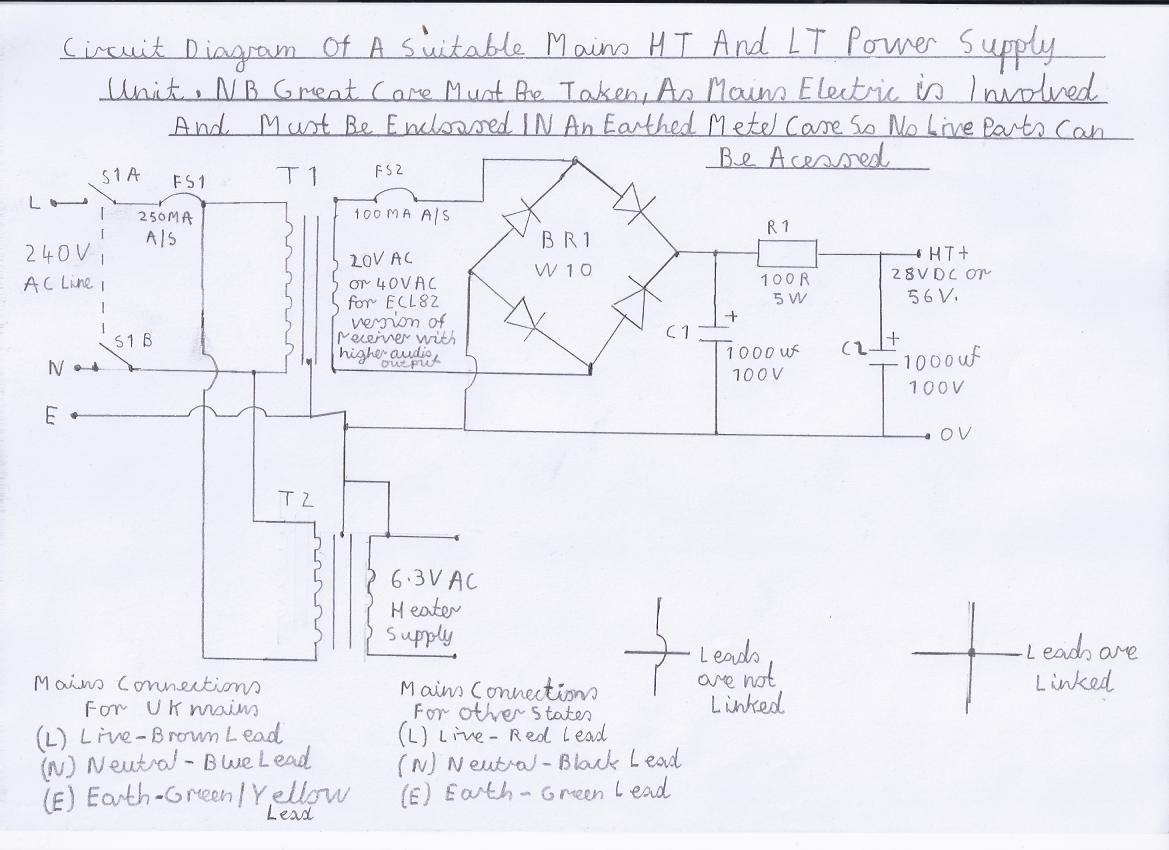 Circuit Diagram Of A Suitable Mains HT And LT Power Supply
Unit. NB Great Care Must Be Taken, As Mains Electric is Involved
And Must Be Enclossed IN An Earthed Metel Case So No Live Parts Can
Be Acessed
S1A
FS1
T1
FS2
L
250MA
A/S
100MA A/S
240V
AC Line
20V AC
or 40VAC
for ECL82
version of
receiver with
higher audio
output
BR1
W10
R1
100R
5W
HT+
28VDC or
56V.
S1B
C1
+
1000uf
100V
C2
+
1000uf
100V
N
E
0V
T2
6.3V AC
Heater
Supply
Leads
are not
Linked
Leads are
Linked
Mains Connections
For UK mains
(L) Live-Brown Lead
(N) Neutral-Blue Lead
(E) Earth-Green/Yellow
Lead
Mains Connections
For other States
(L) Live-Red Lead
(N) Neutral-Black Lead
(E) Earth-Green Lead